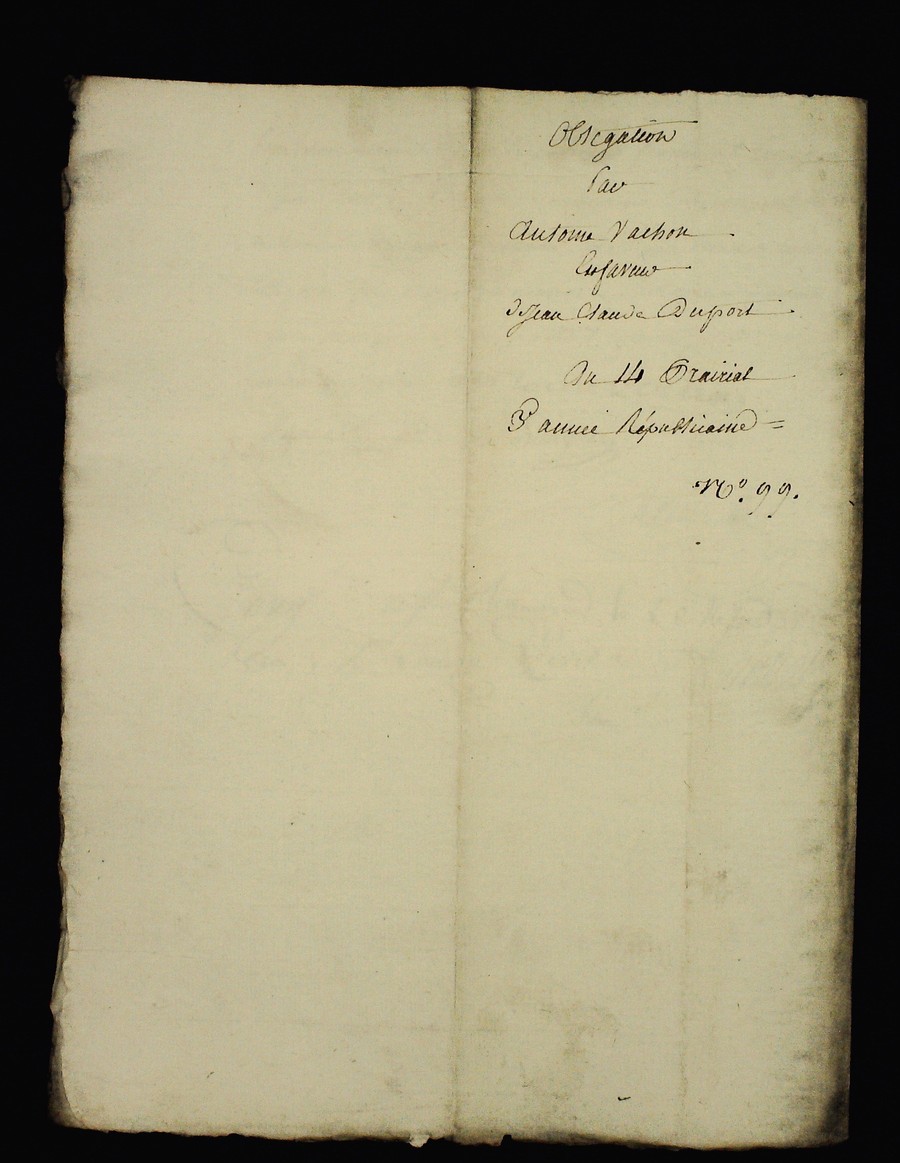 Obligation
Par
Antoine Vachon
En faveur
D Jean Claude Duport
Du 14 Prairial
3e année Républicaine =
No. 99.